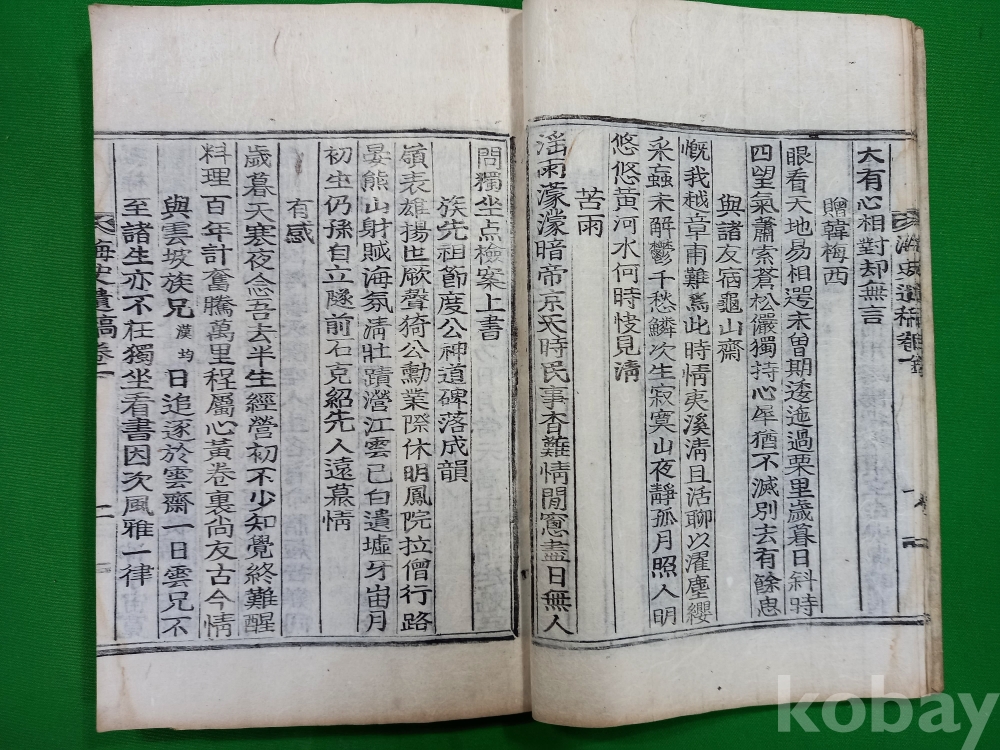 大有心相對却無言
贈韓梅西
眼看天地易相違未曽期逶迤過栗里歲暮日斜時
四望氣蕭索蒼松儼獨持心犀猶不滅別去有餘思
與諸友宿龜山齋
慨我越章甫難爲此時情夷溪淸且活聊以濯塵纓
采蝨未解鬱千愁鱗次生寂寞山夜靜孤月照人明
悠悠黃河水何時快見淸
苦雨
滛雨濛濛暗帝京天時民事杳難情閒窓盡日無人
海史遺稿卷一
一
問獨坐点檢案上書
族先祖節度公神道碑落成韻
嶺表雄揚世厥聲猗公勳業際休明鳳院拉僧行路
晏熊山射賊海氛淸壯蹟瀅江雲已白遺墟牙宙月
初生仍孫自立隧前石克紹先人遠慕情
有感
歲暮天寒夜念吾去半生經營初不少知覺終難醒
料理百年計奮騰萬里程屬心黃卷裏尙友古今情
與雲坡族兄漢均日追逐於雲齋一日雲兄不
至諸生亦不在獨坐看書因次風雅一律
海史遺稿卷一
二
kobay